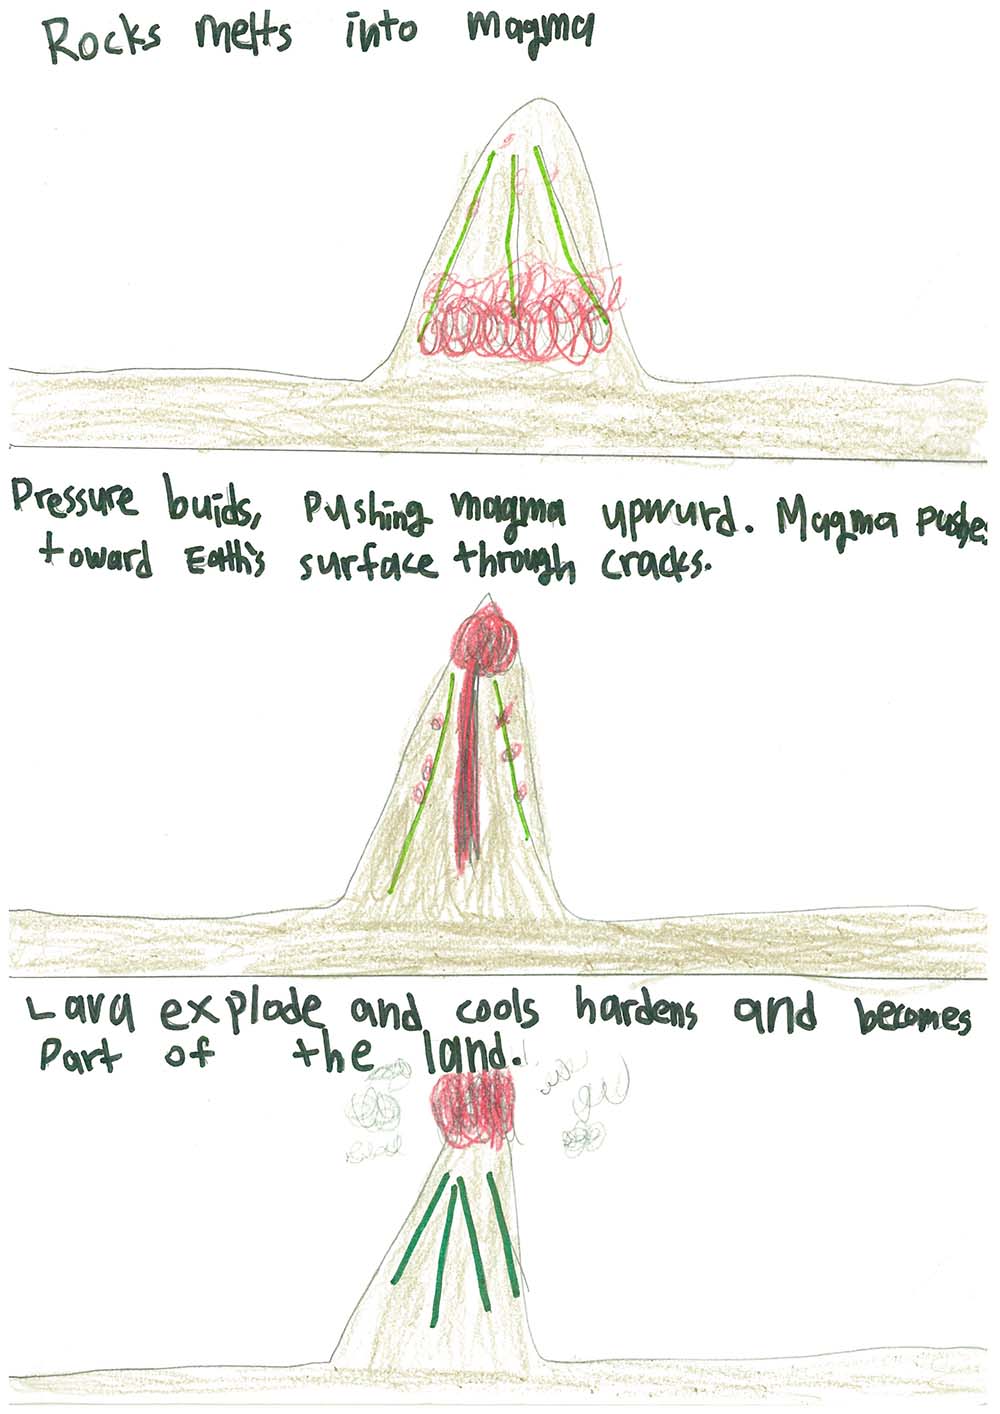 Rocks melts into magma
Pressure buids, Pushing magma upwurd. Magma pushes
toward Eath's surface through cracks.
Lava explode and cools hardens and becomes
Part of the land.